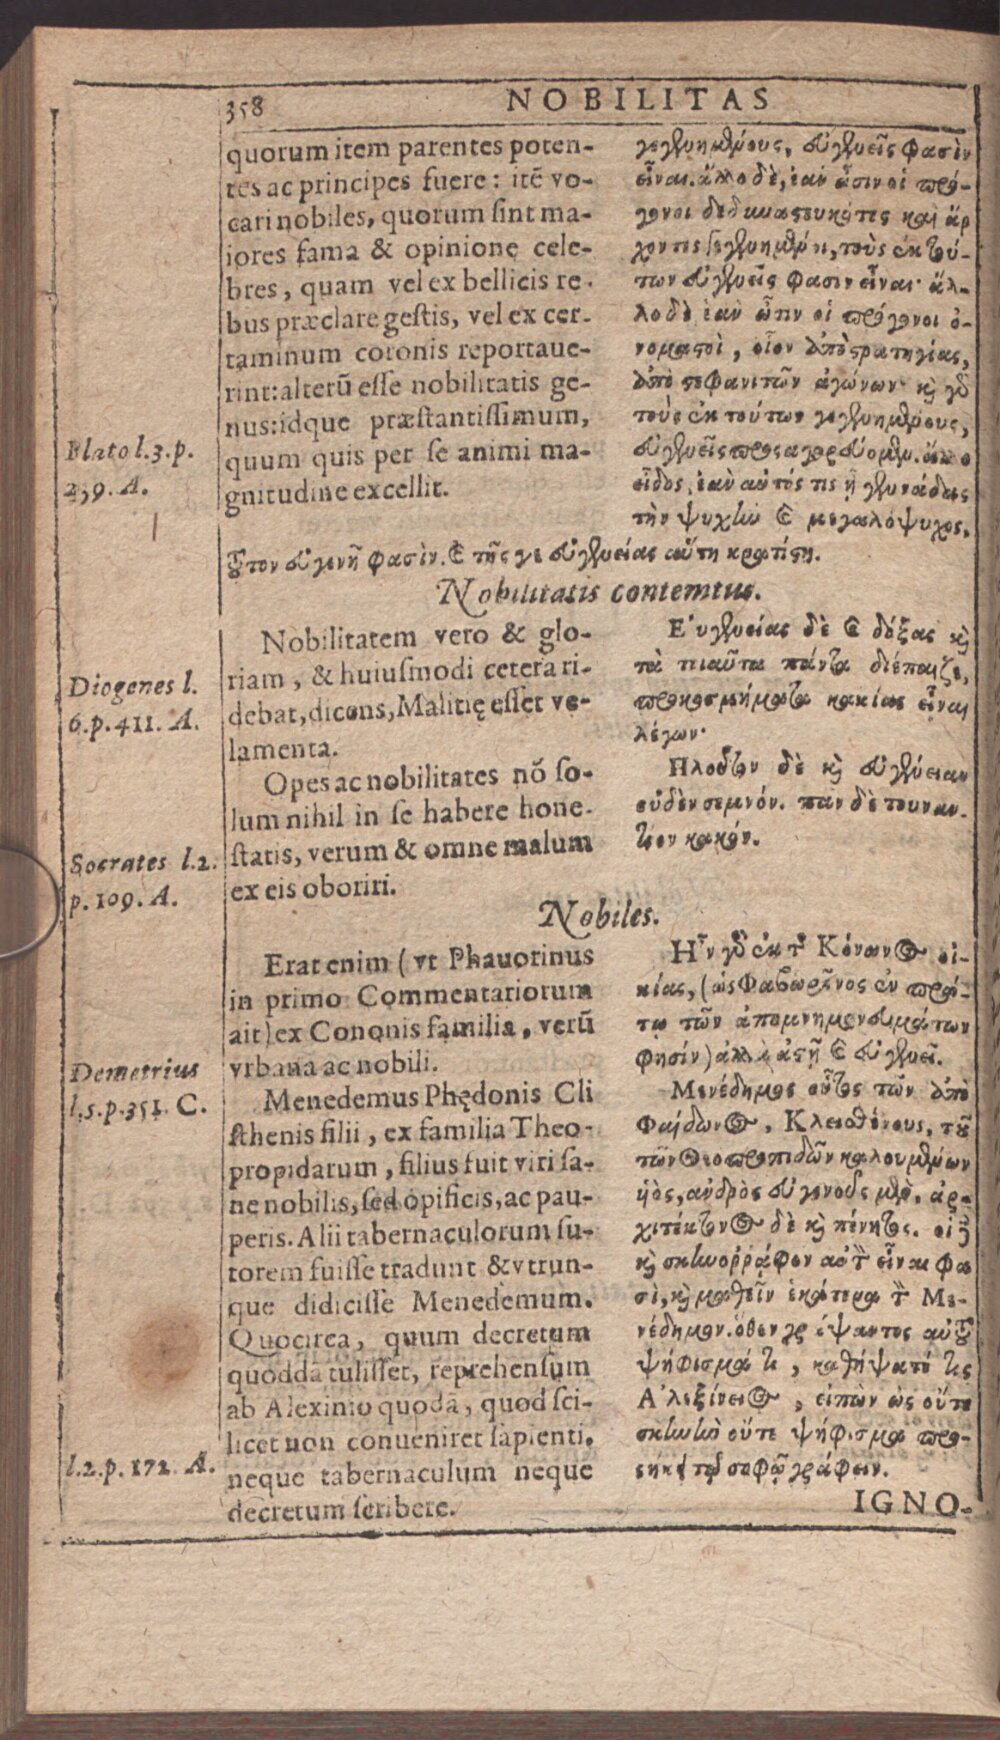 358
NOBILITAS
quorum item parentes poten-
tes ac principes fuere: itē vo-
cari nobiles, quorum ſint ma-
iores fama & opinione cele-
bres, quam vel ex bellicis re-
bus præclare geſtis, vel ex cer-
taminum coronis reportaue-
rint: alterū eſſe nobilitatis ge-
nus: idque præſtantiſſimum,
quum quis per ſe animi ma-
gnitudine excellit.
Plato l.3.p.
239. A.
γεγενημένους, εὐγενεῖς φασὶν
εἶναι. ἄλλο δὲ, ἐὰν ὦσιν οἱ πρό-
γονοι δεδυναστευκότες καὶ ἄρ
χοντες γεγενημένοι, τοὺς ἐκ τού-
των εὐγενεῖς φασιν εἶναι· ἄλ-
λο δὲ ἐὰν ὦσιν οἱ πρόγονοι ὀ-
νομαστοὶ, οἷον ἀπὸ στρατηγίας,
ἀπὸ στεφανιτῶν ἀγώνων· καὶ γὰρ
τοὺς ἐκ τούτων γεγενημένους,
εὐγενεῖς προσαγορεύομεν. ἄλλο
εἶδος, ἐὰν αὐτός τις ᾖ γεννάδας
τὴν ψυχὴν καὶ μεγαλόψυχος,
τοῦτον εὐγενῆ φασὶν. καὶ τῆς γε εὐγενείας αὕτη κρατίστη.
Nobilitatis contemtus.
Nobilitatem vero & glo-
riam, & huiuſmodi cetera ri-
debat, dicens, Malitię eſſet ve-
lamenta.
Opes ac nobilitates nō ſo-
lum nihil in ſe habere hone-
ſtatis, verum & omne malum
ex eis oboriri.
Diogenes l.
6.p.411. A.
Socrates l.2.
p. 109. A.
Εὐγενείας δὲ καὶ δόξας καὶ
τὰ τοιαῦτα πάντα διέπαιζε,
προκοσμήματα κακίας εἶναι
λέγων·
Πλοῦτον δὲ καὶ εὐγένειαν
οὐδὲν σεμνόν. πᾶν δὲ τουναν-
τίον κακόν.
Nobiles.
Erat enim (vt Phauorinus
in primo Commentariorum
ait) ex Cononis familia, verū
vrbana ac nobili.
Menedemus Phędonis Cli
ſthenis filii, ex familia Theo-
propidarum, filius fuit viri ſa-
ne nobilis, ſed opificis, ac pau-
peris. Alii tabernaculorum ſu-
torem fuiſſe tradunt & vtrun-
que didiciſſe Menedemum.
Quocirca, quum decretum
quoddā tuliſſet, reprehenſum
ab Alexinio quodā, quod ſci-
licet non conueniret ſapienti,
neque tabernaculum neque
decretum ſcribere.
Demetrius
l.5.p.351. C.
l.2.p. 172. A.
Ἦν γὰρ ἐκ τῆς Κόνωνος οἰ-
κίας, (ὡς Φαβωρῖνος ἐν πρώ-
τῳ τῶν ἀπομνημονευμάτων
φησίν) ἀλλὰ ἀστῇ καὶ εὐγενεῖ.
Μενέδημος οὗτος τῶν ἀπὸ
Φαίδωνος, Κλεισθένους, τοῦ
τῶν Θεοπροπιδῶν καλουμένων
υἱὸς, ἀνδρὸς εὐγενοῦς μὲν, ἀρ-
χιτέκτονος δὲ καὶ πένητος. οἱ δὲ
καὶ σκηνοῤῥάφον αὐτὸν εἶναι φα
σὶ, καὶ μαθεῖν ἑκάτερα τὸν Με-
νέδημον. ὅθεν γράψαντος αὐτοῦ
ψήφισμά τι, καθήψατό τις
Ἀλεξίνειος, εἰπὼν ὡς οὔτε
σκηνὴν οὔτε ψήφισμα προ-
σήκει τῷ σοφῷ γράφειν.
IGNO-